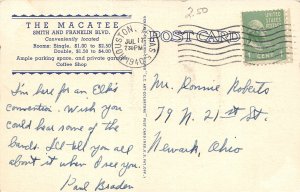 2.50
THE MACATEE
SMITH AND FRANKLIN BLVD.
Conveniently located
Rooms: Single, $1.00 to $2.50
Double, $1.50 to $4.00
Ample parking space, and private garage
Coffee Shop
HOUSTON, TEXAS
JUL 1
7 PM
1940
POST CARD
I'm here for an Elk's
convention. Wish you
could hear some of the
bands. I'll tell you all
about it when I see you.
Paul Braden
Mr. Ronnie Roberts
79 N. 21st St.
Newark, Ohio